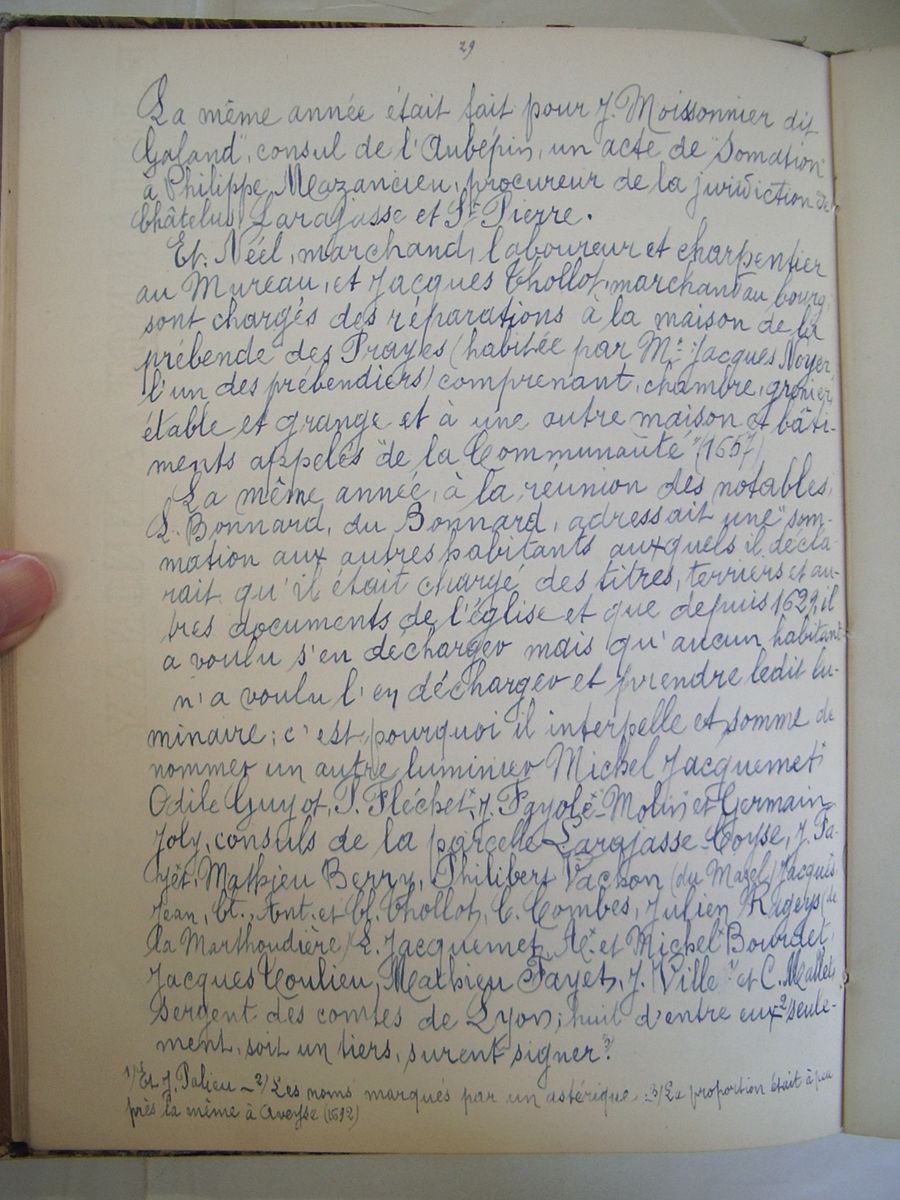 29
La même année était fait pour J. Moissonnier dit
Galand", consul de l'Aubépin, un acte de "Somation"
à Philippe Mazancieu, procureur de la juridiction de
Châtelus Larajasse et St Pierre.
Et. Néel, marchand, laboureur et charpentier
au Mureau, et Jacques Thollot, marchand au bourg,
sont chargés des réparations à la maison de la
prébende des Prayes (habitée par Mre Jacques Noyer,
l'un des prébendiers) comprenant, chambre, grenier,
étable et grange et à une autre maison et bâti-
ments appelés "de la Communauté" (1657)
La même année, à la réunion des notables,
L. Bonnard, du Bonnard, adressait une "som-
mation aux autres habitants auxquels il décla-
rait qu'il était chargé des titres, terriers et au-
tres documents de l'église et que depuis 1629, il
a voulu s'en décharger mais qu'aucun habitant
n'a voulu l'en décharger et prendre ledit lu-
minaire; c'est pourquoi il interpelle et somme de
nommer un autre luminier Michel Jacquemet*
Odile Guyot, P. Fléchet*, J. Fayole*-Molin et Germain
Joly, consuls de la parcelle Larajasse Coyse, J. Pa-
yet, Mathieu Berry, Philibert Vachon (du Mazel) Jacques
Jean, Ct., Ant. et Cl. Thollot, C. Combes, Julien Rigeys (de
la Marthoudière) L. Jacquemet, et Michel* Bourdet,
Jacques Coulieu, Mathieu Fayet, J. Ville 1) et C. Mallet,
sergent des comtes de Lyon; huit d'entre eux 2) seule-
ment, soit un tiers, surent signer 3).
1) Et J. Palieu _ 2) Les noms marqués par un astérique _ 3) La proportion était à peu
près la même à Aveyse (1692)